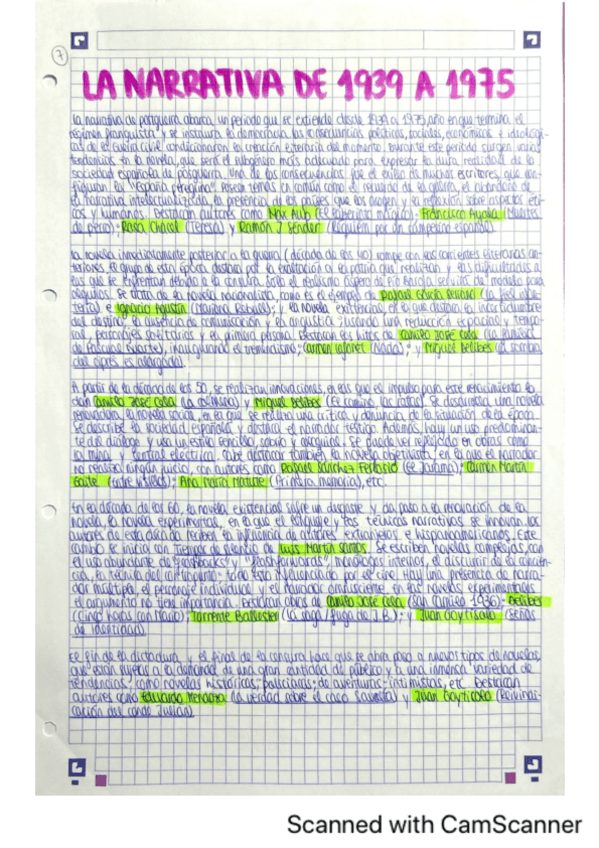 7
LA NARRATIVA DE 1939 A 1975
La narrativa de posguerra abarca un periodo que se extiende desde 1939 a 1975, año en que termina el
régimen franquista y se instaura la democracia. Las consecuencias políticas, sociales, económicas e ideológi-
cas de la Guerra civil condicionaron la creación literaria del momento. Durante este periodo surgen varias
tendencias en la novela, que será el subgénero más adecuado para expresar la dura realidad de la
sociedad española de posguerra. Una de las consecuencias fue el exilio de muchos escritores, que con-
figuran la "España peregrina". Poseen temas en común como el recuerdo de la guerra, el abandono de
la narrativa intelectualizada, la presencia de los países que los acogen y la reflexión sobre aspectos éti-
cos y humanos. Destacan autores como Max Aub (El laberinto mágico); Francisco Ayala (Muertes
de perro); Rosa Chacel (Teresa) y Ramón J Sender (Réquiem por un campesino español).
La novela inmediatamente posterior a la guerra (década de los 40) rompe con las corrientes literarias an-
teriores. El grupo de esta época destaca por la exaltación a la patria que realizan y las dificultades a
las que se enfrentan debido a la censura. Solo el realismo áspero de Pío Baroja servirá de modelo para
algunos. Se trata de la novela nacionalista, como es el ejemplo de Rafael García Serrano (La fiel infan-
tería) e Ignacio Agustí (Mariona Rebull); y la novela existencial, en la que destaca la incertidumbre
del destino, la ausencia de comunicación y la angustia, usando una reducción espacial y tempo-
ral, personajes solitarios y la primera persona. Destacan los libros de Camilo José Cela (La familia
de Pascual Duarte), inaugurando el tremendismo; Carmen Laforet (Nada); y Miguel Delibes (La sombra
del ciprés es alargada).
A partir de la década de los 50, se realizan innovaciones, en las que el impulso para este renacimiento lo
dan Camilo José Cela (La colmena) y Miguel Delibes (El camino, Las ratas). Se desarrolla una novela
renovadora, la novela social, en la que se realiza una crítica y denuncia de la situación de la época.
Se describe la sociedad española y destaca el narrador testigo. Además, hay un uso predominan-
te del diálogo y usa un estilo sencillo, sobrio y conciso. Se puede ver reflejado en obras como
La mina y Central eléctrica. Cabe destacar también la novela objetivista, en la que el narrador
no realiza ningún juicio, con autores como Rafael Sánchez Ferlosio (El Jarama); Carmen Martín
Gaite (Entre visillos); Ana María Matute (Primera memoria), etc.
En la década de los 60, la novela existencial sufre un desgaste y da paso a la renovación de la
novela, la novela experimental, en la que el lenguaje y las técnicas narrativas se innovan. Los
autores de esta década reciben la influencia de autores extranjeros e hispanoamericanos. Este
cambio se inicia con Tiempo de silencio de Luis Martín Santos. Se escriben novelas complejas, con
el uso abundante de "flashbacks" y "flashforwards", monólogos internos, el discurrir de la concien-
cia, la técnica del contrapunto; todo esto influenciado por el cine. Hay una presencia de narra-
dor múltiple, el personaje individual y el narrador omnisciente. En las novelas experimentales
el argumento no tiene importancia. Destacan obras de Camilo José Cela (San Camilo 1936); Delibes
(Cinco horas con Mario); Torrente Ballester (La saga/fuga de J.B.); y Juan Goytisolo (Señas
de identidad).
El fin de la dictadura y el final de la censura hace que se abra paso a nuevos tipos de novelas,
que están sujetas a la demanda de una gran cantidad de público y a una inmensa variedad de
tendencias, como novelas históricas, policiacas, de aventuras, intimistas, etc. Destacan
autores como Eduardo Mendoza (La verdad sobre el caso Savolta) y Juan Goytisolo (Reivindi-
cación del conde Julián).
Scanned with CamScanner